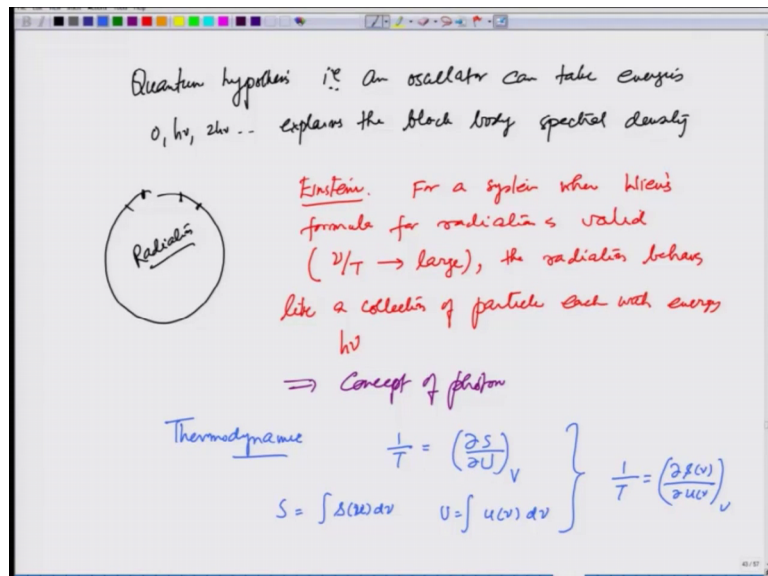 Quantum hypothesis i.e. an oscillator can take energies
0, hν, 2hν .. explains the black body spectral density
Radiation
Einstein. For a system when Wien's
formula for radiation is valid
(ν/T → large), the radiation behaves
like a collection of particle each with energy
hν
⇒ Concept of photon
Thermodynamic 1/T = (∂S/∂U)_V
S = ∫ s(ν) dν U = ∫ u(ν) dν } 1/T = (∂s(ν)/∂u(ν))_V
43 / 57